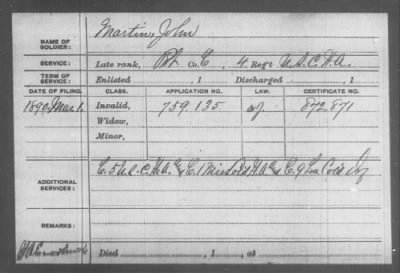 NAME OF SOLDIER: Martin John
SERVICE: Late rank, Pvt Co. C, 4 Reg't U.S.C.H.A.
TERM OF SERVICE: Enlisted , 1 Discharged , 1
DATE OF FILING. CLASS. APPLICATION NO. LAW. CERTIFICATE NO.
1890 Mar 1. Invalid, 759.135 872.871
Widow,
Minor,
ADDITIONAL SERVICES: C. 5 U.S.C.H.A. & C. 1 Miss Cold H.A. & C. 9 La Cold Inf
REMARKS:
Died , 1 , at